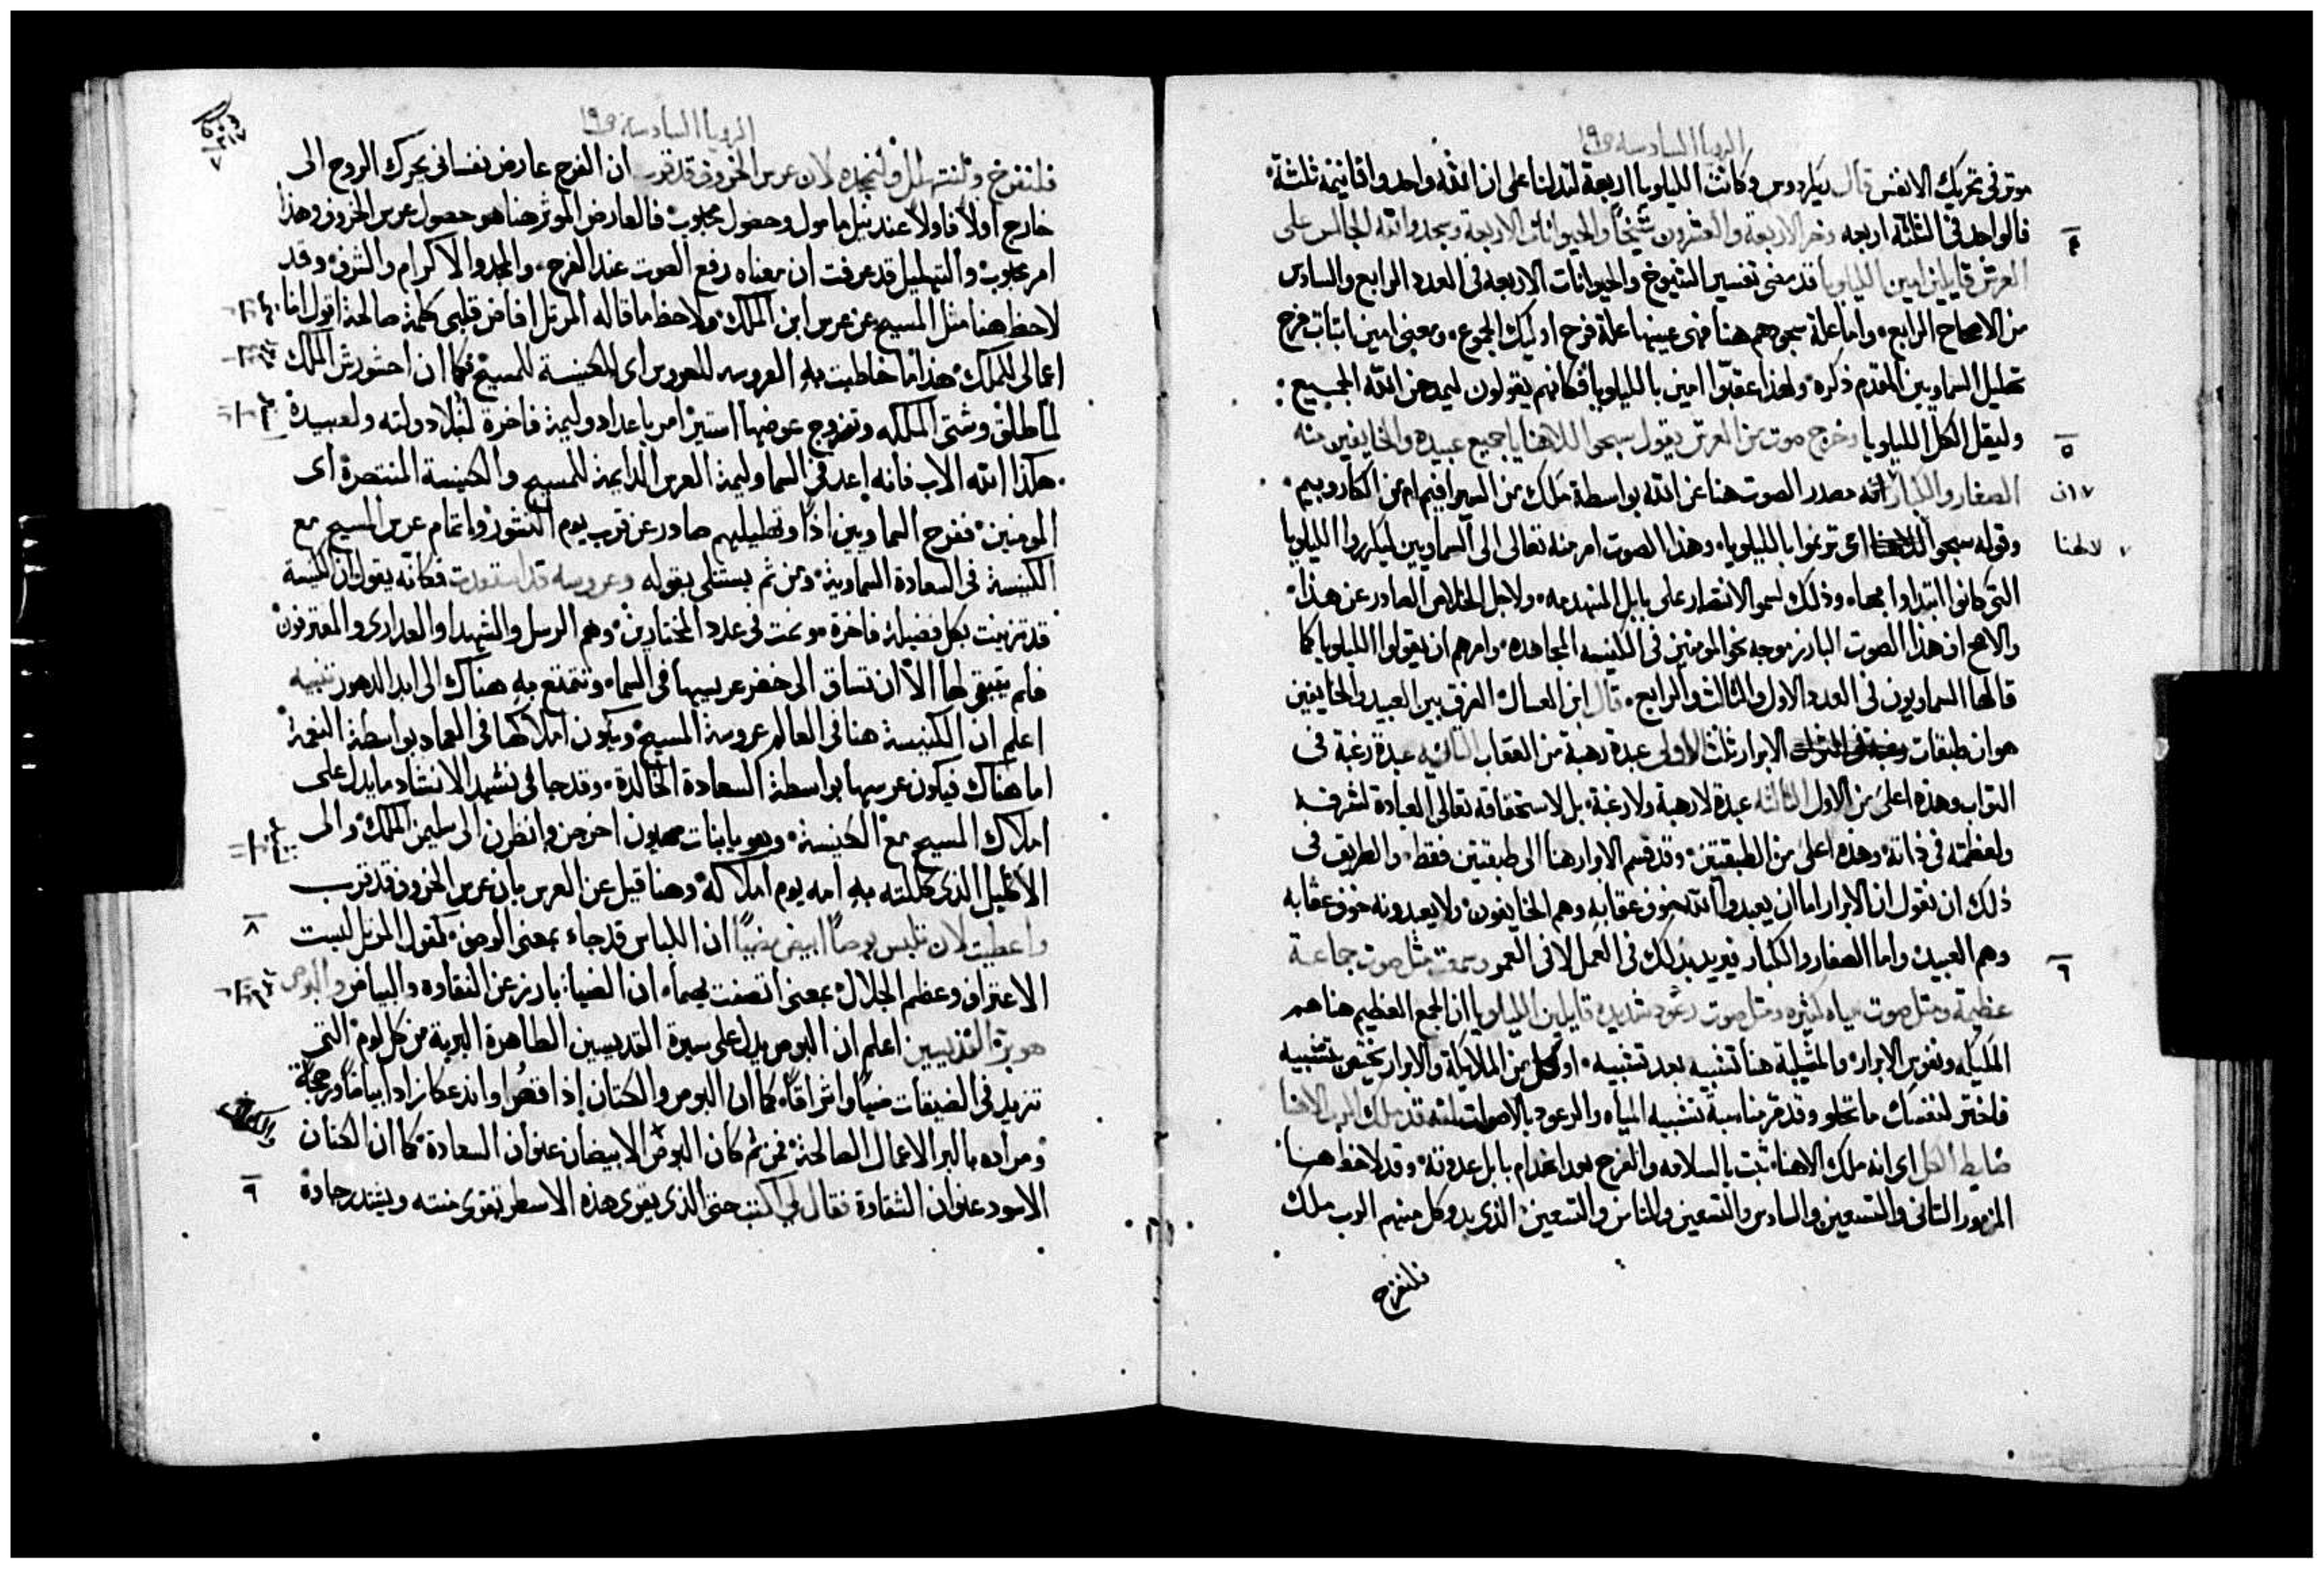 الرويا السادسه ص١٩
موثر في تحريك الانفس قال ريكاردوس وكانت الليلويا اربعة لتدلنا على ان الله واحد واقانيمه ثلثة
فالواحد في الثلثة اربعه وخر الاربعة والعشرون شيخًا والحيوانات الاربعة وسجدوا لله الجالس على
٤
العرش قايلين امين الليلويا قد مضى تفسير الشيوخ والحيوانات الاربعه في العدد الرابع والسادس
من الاصحاح الرابع، واما علة سجودهم هنا فهى عينها علة فرح اوليك الجموع، ومعنى امين اثبات فرح
تهليل السماويين المقدم ذكره ولهذا عقبوا امين بالليلويا فكانهم يقولون ليمدحن الله الجميع:
وليقل الكل الليلويا وخرج صوت من العرش يقول سبحوا للاهنا يا جميع عبيده والخايفين منه
٥
الصغار والكبار انه مصدر الصوت هنا عن الله بواسطة ملك من السيرافيم ام من الكاروبيم
٧ ان
وقوله سبحوا للاهنا اى ترنموا بالليلويا، وهذا الصوت امر منه تعالى الى السماويين ليكرروا الليلويا
٧ لالهنا
التى كانوا ابتداوا بها، وذلك لسمو الانتصار على بابل المنهدمه، ولاجل الخلاص الصادر عن هذا
والاصح ان هذا الصوت البارز موجه نحو المومنين في الكنيسه المجاهده، وامرهم ان يقولوا الليلويا كما
قالها السماويون في العدد الاول والثالث والرابع، قال ابن العسال الفرق بين العبيد والخايفين
هو ان طبقات الابرار ثلث الاولى عبدة رهبة من العقاب الثانيه عبدة رغبة في
الثواب وهذه اعلى من الاول الثالثه عبدة لا رهبة ولا رغبة، بل لاستحقاقه تعالى العبادة لشرفه
ولعظمته في ذاته، وهذه اعلى من الطبقتين، وقد قسم الابرار هنا الى طبقتين فقط، والطريق في
ذلك ان نقول ان الابرار اما ان يعبدوا الله خوف عقابه وهم الخايفون، ولا يعبدونه خوف عقابه
وهم العبيد، واما الصغار والكبار فيريد بذلك في العمل لا في العمر وسمعت مثل صوت جماعة
٦
عظيمة ومثل صوت مياه كثيره ومثل صوت رعود شديده قايلين الليلويا ان الجمع العظيم هنا هم
المليكه ونفوس الابرار، والمثيلية هنا تشبيه بعد تشبيه، او كل من الملايكة والابرار يختص بتشبيه
فاختر لنفسك ما تحلو وقد مر مناسبة تشبيه المياه والرعود بالاصوات لانه قد ملك الرب الاهنا
ضابط الكل اى انه ملك الاهنا، ثبت بالسلامه والفرح بعد انهدام بابل عدوته، وقد لاحظ هنا
المزمور الثانى والتسعين والسادس والتسعين والثامن والتسعين، الذى بدو كل منهم الرب ملك
فلنفرح
الرويا السادسة ص١٩
فلنفرح ولنتهلل ولنمجده لان عرس الخروف قد قرب ان الفرح عارض نفسانى يحرك الروح الى
٧
خارج اولا فاولا عند نيل مامول وحصول محبوب، فالعارض الموثر هنا هو حصول عرس الخروف وهذا
امر محبوب، والتهليل قد عرفت ان معناه رفع الصوت عند الفرح، والمجد والاكرام والشرف، وقد
لاحظ هنا مثل المسيح عن عرس ابن الملك، ولاحظ ما قاله المرتل افاض قلبى كلمة صالحة اقول انا
اعمالى للملك، هذا ما خاطبت به العروسه للعروس اى الكنيسة للمسيح فكما ان احشورش الملك
لما طلق وشتى الملكه وتزوج عوضها استير امر باعداد وليمة فاخرة لنبلا دولته ولعبيده
هكذا الله الاب فانه اعد في السما وليمة العرس الدايمة للمسيح والكنيسة المنتصرة اى
المومنين، ففرح السماويين اذًا وتهليلهم صادر عن قرب يوم النشور واتمام عرس المسيح مع
الكنيسة في السعادة السماوية، ومن ثم يستتلى بقوله وعروسه قد استعدت فكانه يقول ان الكنيسة
قد تزينت بكل فضيلة فاخرة، ونمت في عدد المختارين، وهم الرسل والشهدا والعدارى والمعترفون
فلم يتبقى لها الا ان تساق الى خضر عريسها في السماء، وتتمتع به هناك الى ابد الدهور تنبيه
اعلم ان الكنيسة هنا في العالم عروسة المسيح، ويكون املاكها في العماد بواسطة النعمة
اما هناك فيكون عرسها بواسطة السعادة الخالدة، وقد جا في نشيد الانشاد ما يدل على
املاك المسيح مع الكنيسة، وهو يا بنات صهيون اخرجن وانظرن الى سليمن الملك، والى
الاكليل الذى كللته به امه يوم املاكه، وهنا قيل عن العرس بان عرس الخروف قد قرب
واعطيت لان تلبس بوصًا ابيض مضيًا ان اللباس قد جاء بمعنى الوصف، كقول المرتل لبست
٨
الاعتراف وعظم الجلال، بمعنى اتصفت بهما، ان الضيا، بارز عن النقاوه والبياض والبوص
هو بر القديسين اعلم ان البوص يدل على سيرة القديسين الطاهرة البرية من كل لوم، التى
تزيد في الضيقات ضيا واشراقًا، كما ان البوص والكتان اذا قصر واندعكا زادا بياضًا وبهجة
ومراده بالبر الاعمال الصالحة، فمن ثم كان البوص الابيضان عنوان السعادة، كما ان الكتان
والكتان
الاسود عنوان الشقاوة فقال لي اكتب حتى الذى يقرى هذه الاسطر تقوى منته ويشتد رجاه
٩